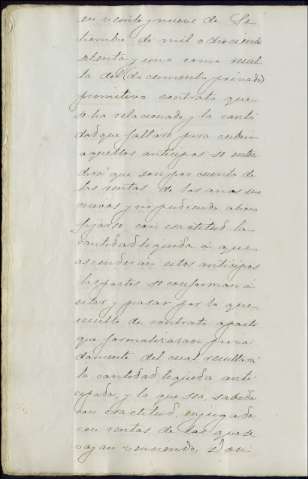 en veinte y nueve de Se-
tiembre de mil ochocientos
setenta y uno como resul-
ta del documento privado
primitivo contrato que
se ha relacionado y la canti-
dad que faltare para cubrir
aquellos anticipos se enten-
derá que son por cuenta de
las rentas de los años su-
cesivos y no pudiendo ahora
fijarse con exactitud la
cantidad líquida á que
ascenderan estos anticipos
las partes se conforman á
estar y pasar por lo que
resulte de contrato aparte
que formalizaran priva-
damente del cual resultará
la cantidad líquida anti-
cipada y lo que sea sabida
con exactitud, enjugada
con rentas de las que se
vayan venciendo. Don